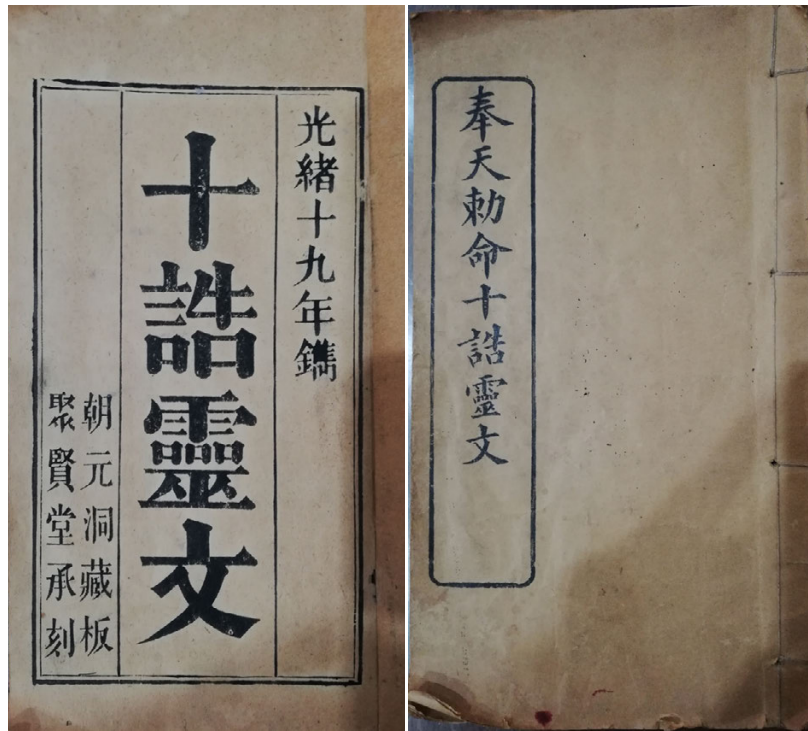 光緒十九年鐫
十誥靈文
朝元洞藏板
聚賢堂承刻
奉天勅命十誥靈文